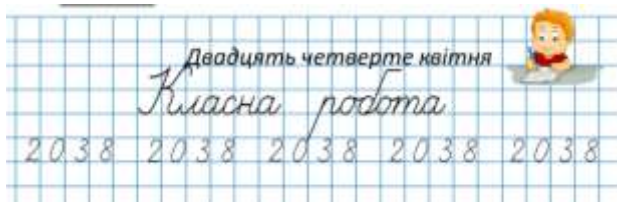 Двадцять четверте квітня
Класна робота
2038 2038 2038 2038 2038